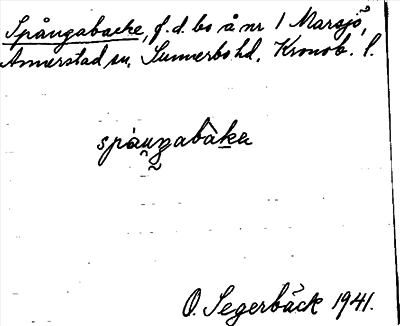 Spångabacke, f.d. bo å nr 1 Marsjö,
Annerstad sn, Sunnerbo hd, Kronob. l.
spåuŋabàka
O. Segerbäck 1941.